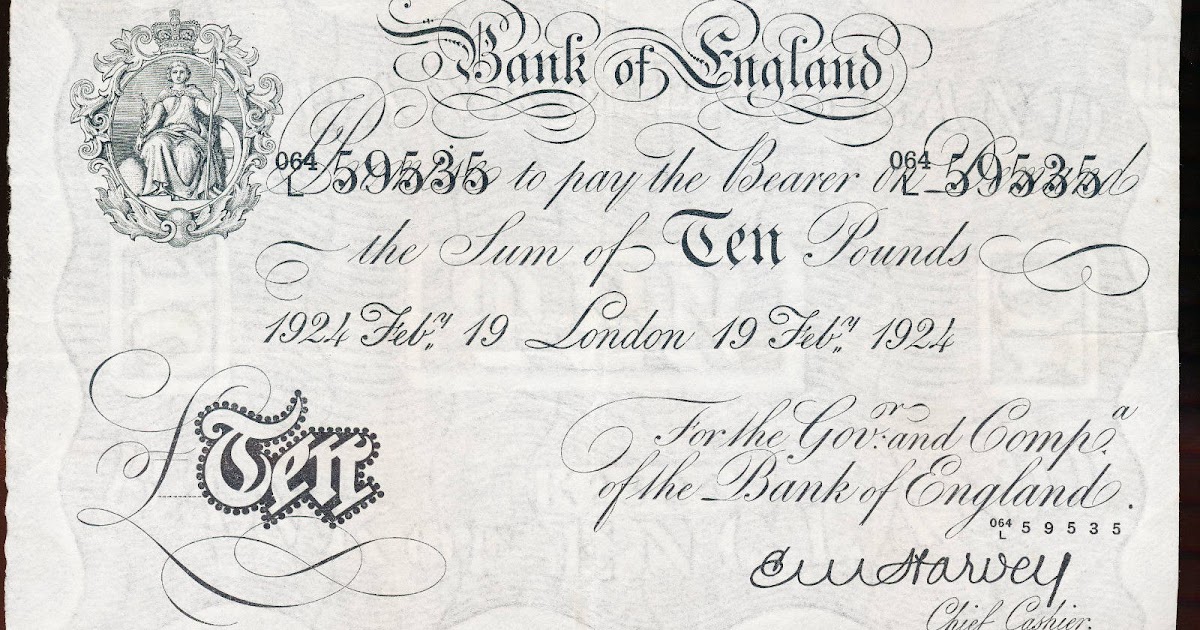 Bank of England
064 L 59535 Promise to pay the Bearer on Demand 064 L 59535
the Sum of Ten Pounds
1924 Feb.ʸ 19 London 19 Feb.ʸ 1924
£Ten
For the Gov.ᵒʳ and Comp.ᵃ
of the Bank of England.
064 L 59535
Harvey
Chief Cashier.